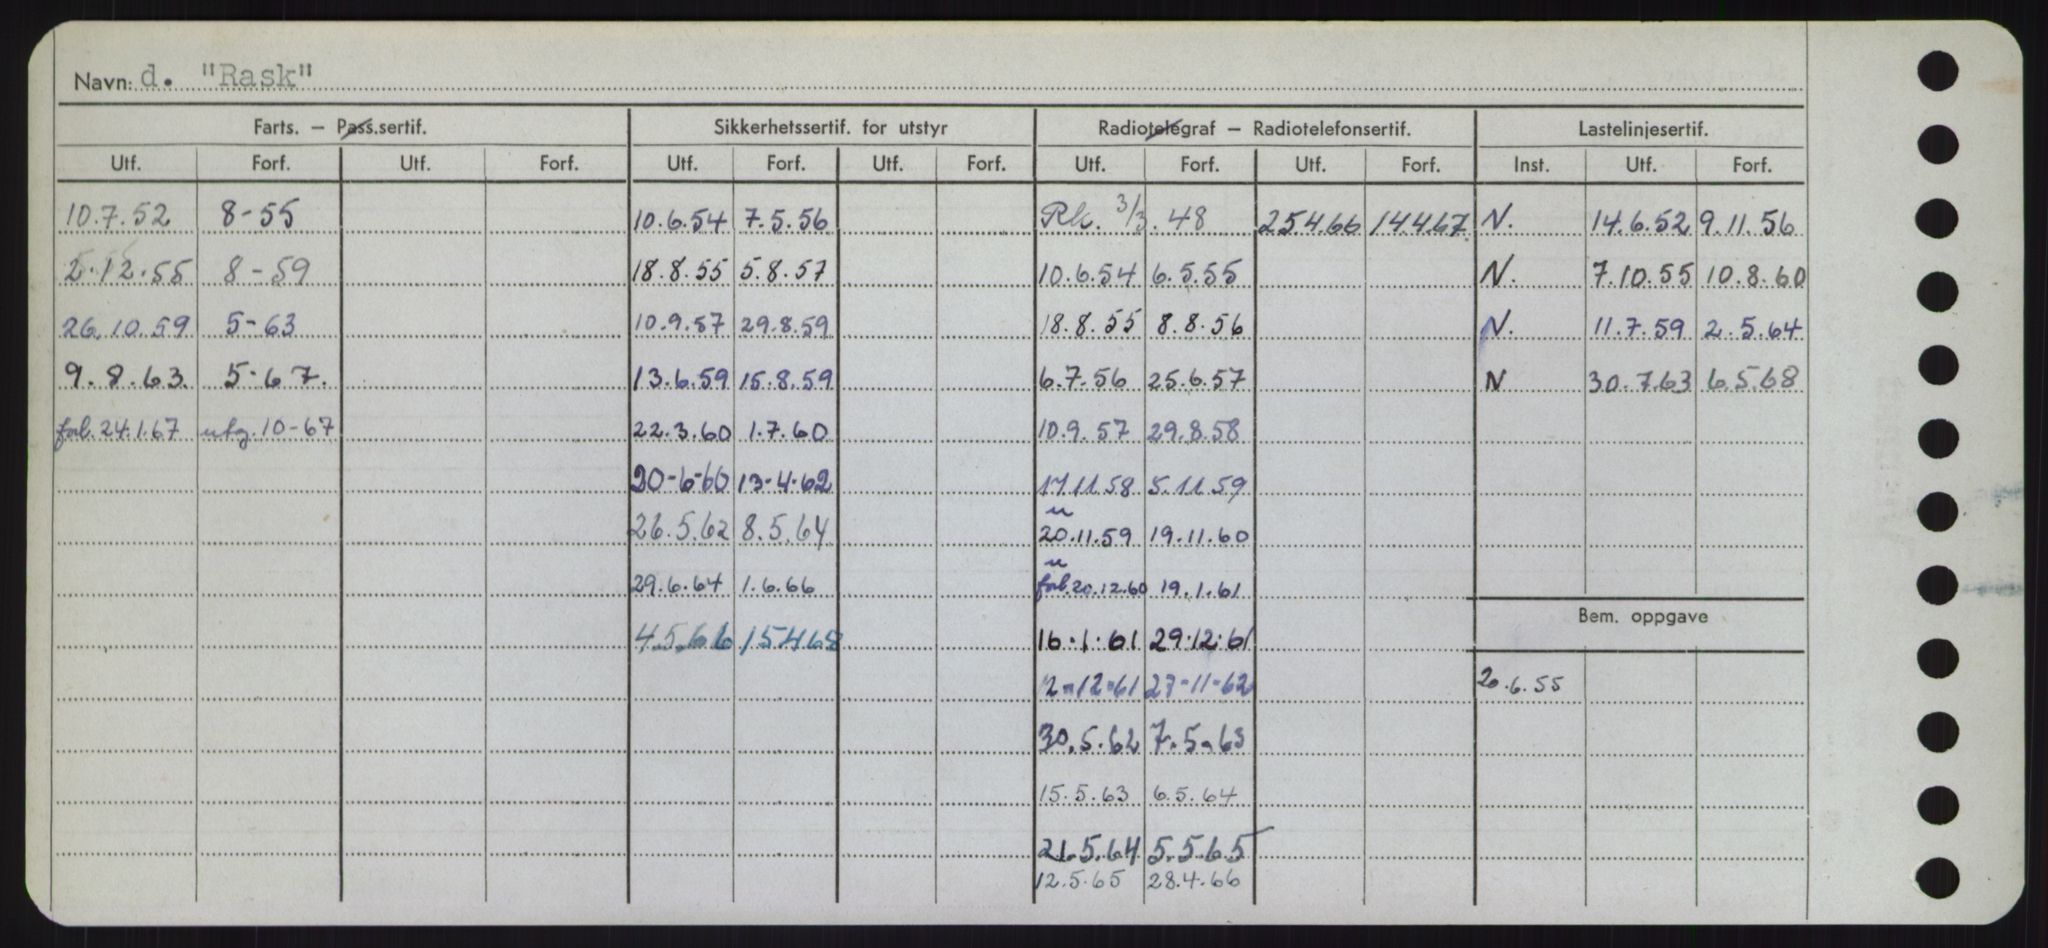 Navn: d. "Rask"
Farts. – Pass.sertif. Sikkerhetssertif. for utstyr Radiotelegraf – Radiotelefonsertif. Lastelinjesertif.
Utf. Forf. Utf. Forf. Utf. Forf. Utf. Forf. Utf. Forf. Utf. Forf. Inst. Utf. Forf.
10.7.52 8-55 10.6.54 7.5.56 Rk. 3/3.48 25.4.66 14.4.67. N. 14.6.52 9.11.56
2.12.55 8-59 18.8.55 5.8.57 10.6.54 6.5.55 N. 7.10.55 10.8.60
26.10.59 5-63 10.9.57 29.8.59 18.8.55 8.8.56 N. 11.7.59 2.5.64
9.8.63. 5-67. 13.6.59 15.8.59 6.7.56 25.6.57 N 30.7.63 6.5.68
forl. 24.1.67 utg. 10-67 22.3.60 1.7.60 10.9.57 29.8.58
20-6-60 13-4-62 17.11.58 5.11.59
26.5.62 8.5.64 20.11.59 19.11.60
29.6.64 1.6.66 forl. 20.12.60 19.1.61
Bem. oppgave
4.5.66 15.4.68 16.1.61 29.12.61
2-12-61 27-11-62 20.6.55
30.5.62 7.5.63
15.5.63 6.5.64
21.5.64 5.5.65
12.5.65 28.4.66